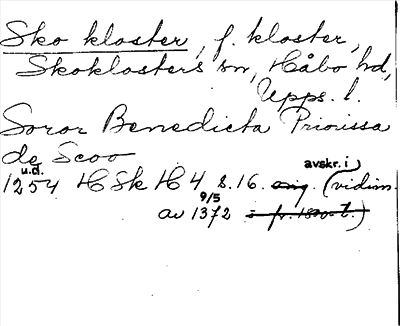 Sko kloster, f. kloster,
Skoklosters sn, Håbo hd,
Upps. l.
Soror Benedicta Priorissa
de Scoo
u.d. avskr. i
1254 HSH H4 s. 16. orig. (vidim.
9/5
av 1372 i fr. 1800-t.)